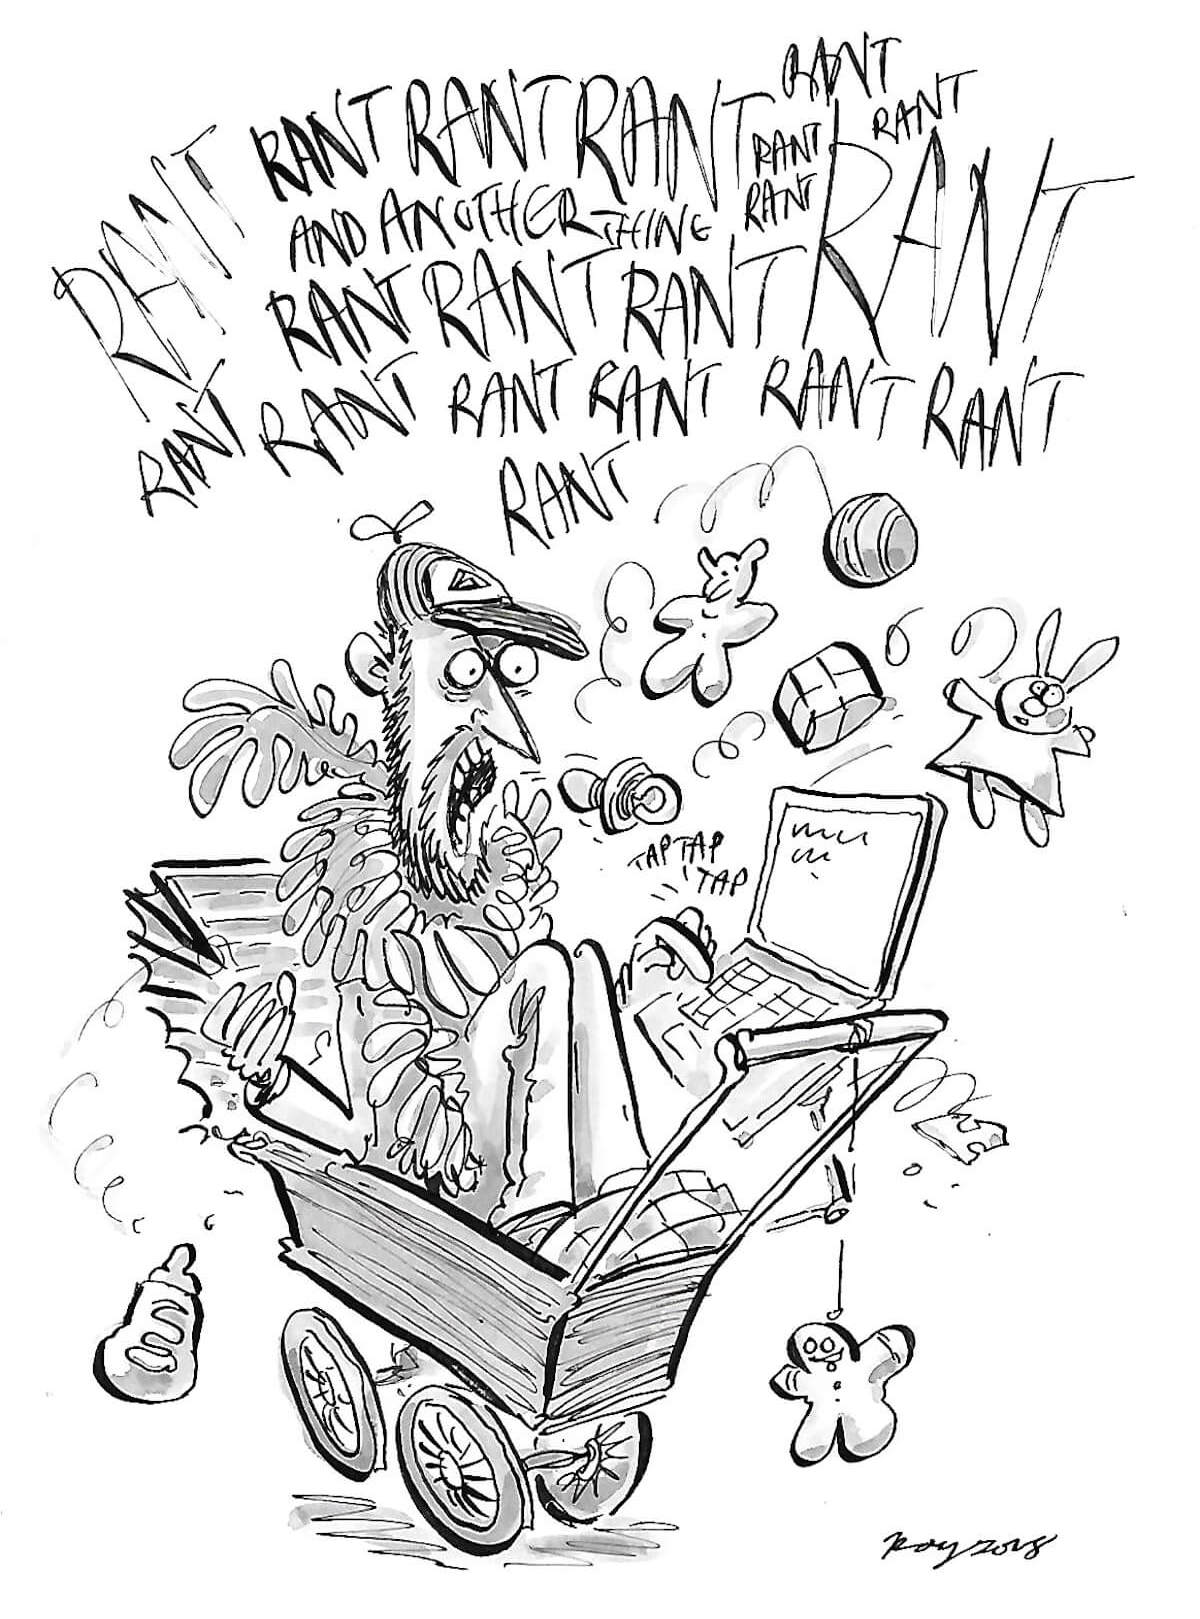 RANT RANT RANT RANT RANT
RANT
RANT
AND ANOTHER THING RANT
RANT RANT RANT RANT RANT
RANT RANT RANT RANT RANT RANT
RANT
TAP TAP
TAP
Roy 2018